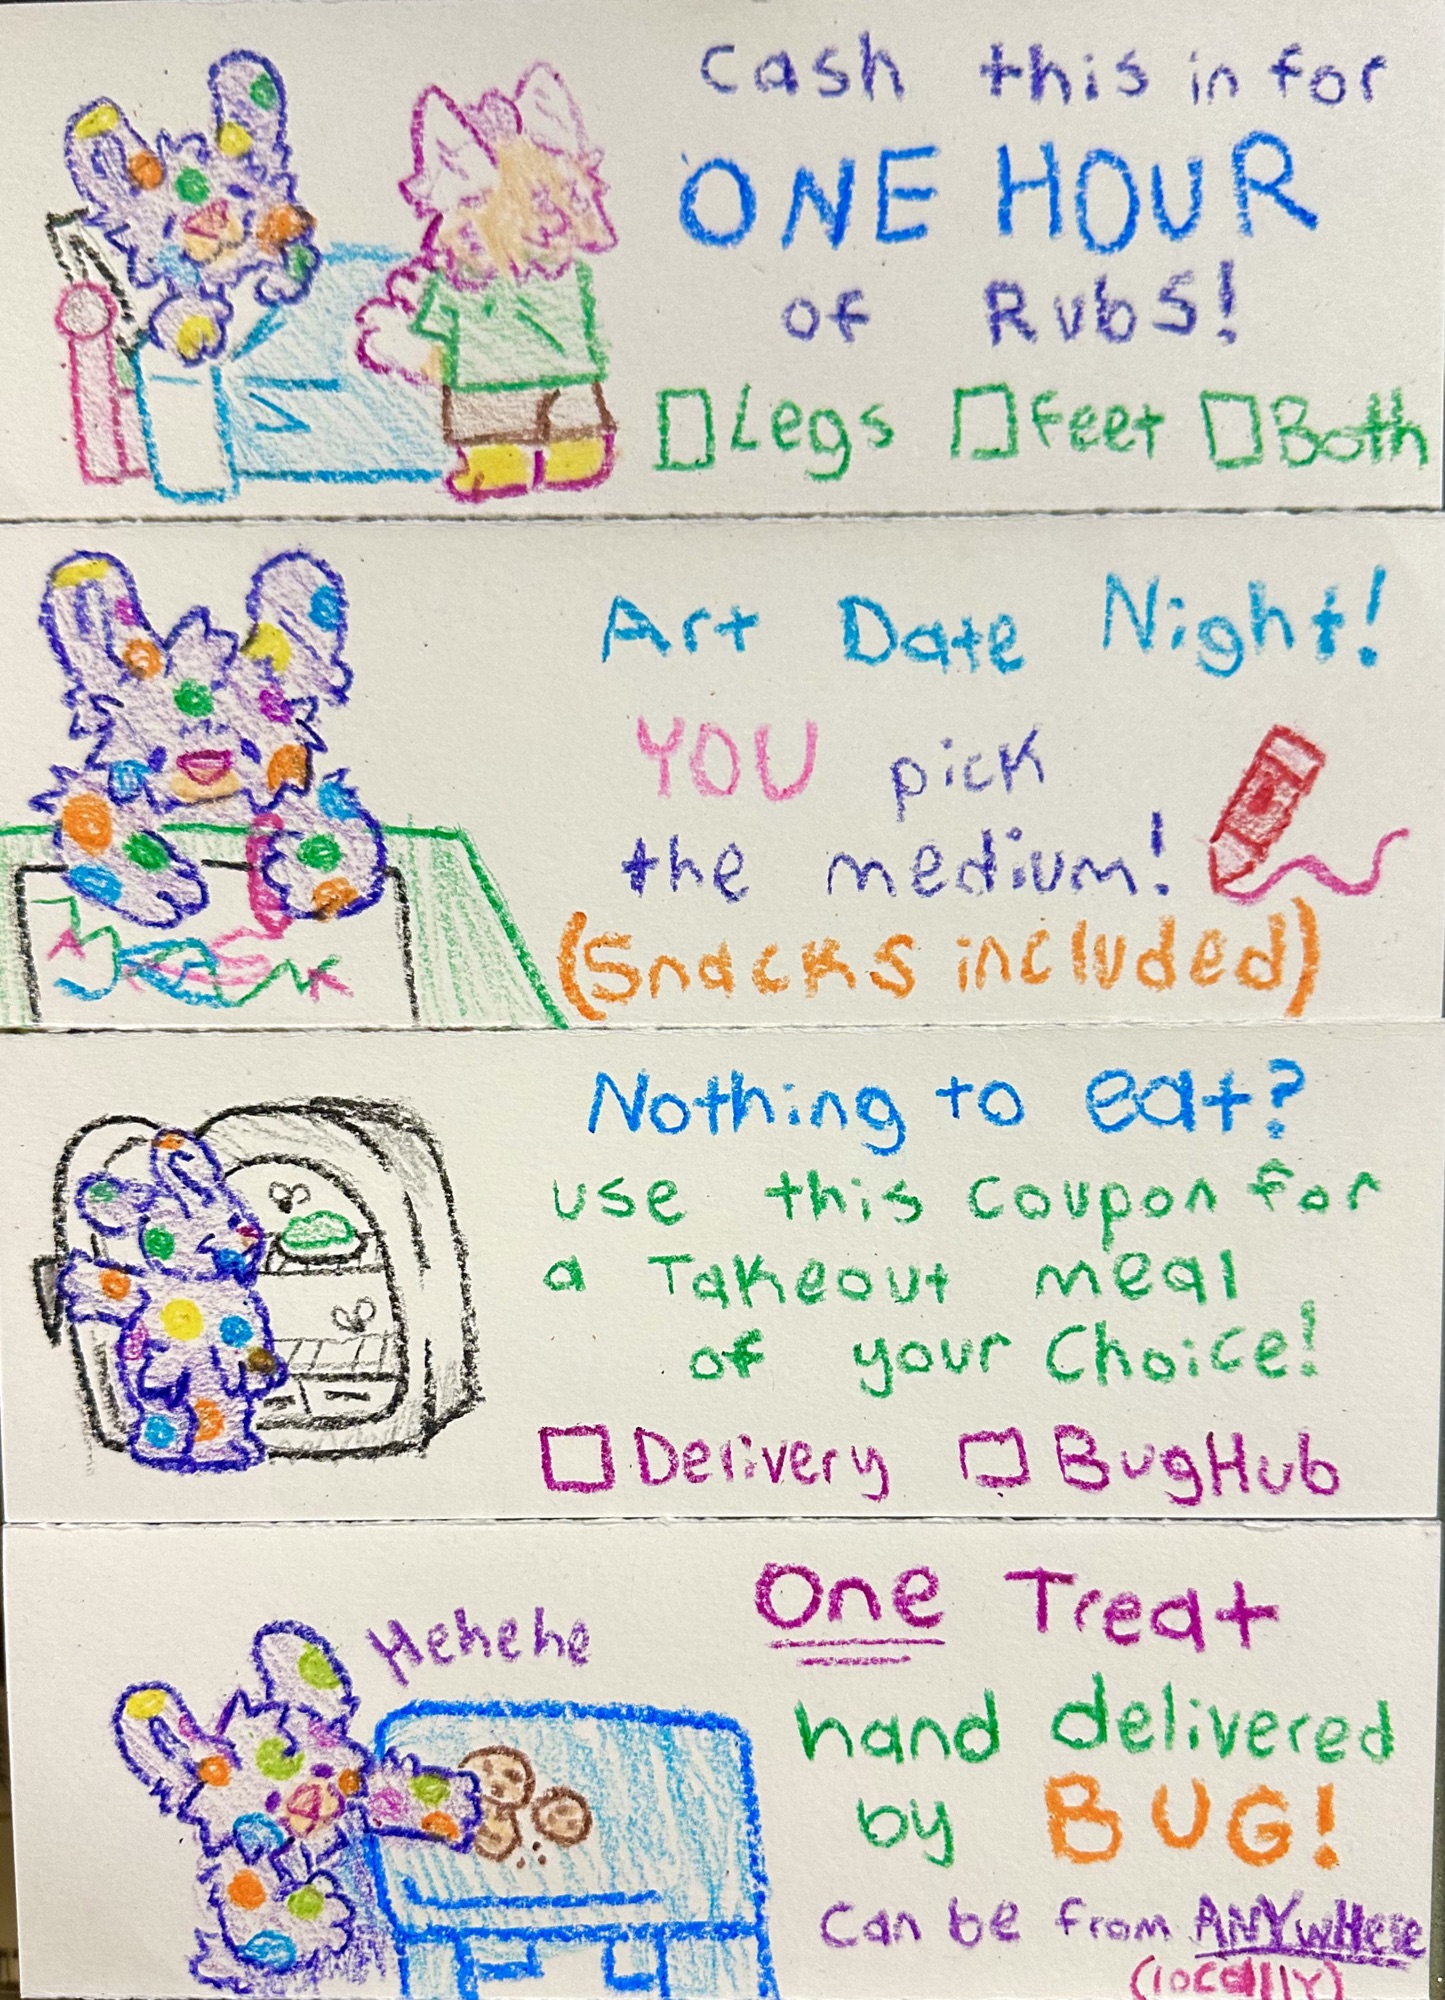 Cash this in for
ONE HOUR
of Rubs!
Legs Feet Both
Art Date Night!
YOU pick
the medium!
(Snacks included)
Nothing to eat?
use this coupon for
a Takeout meal
of your Choice!
Delivery BugHub
Hehehe
One Treat
hand delivered
by BUG!
Can be from ANYwHere
(locally)